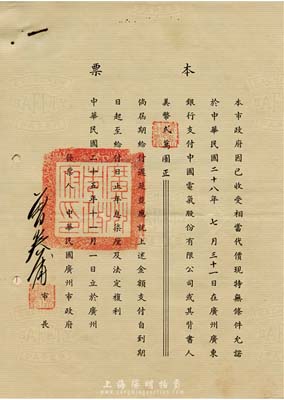 本票
本市政府因已收受相當代價現特無條件允諾
於中華民國二十八年七月三十一日在廣州廣東
銀行支付中國電氣股份有限公司或其背書人
美幣弍萬圓正
倘屆期給付遲延並應就上述金額支付自到期
日起至給付日止年息柒厘及法定複利
中華民國二十五年十一月一日立於廣州
發票人 中華民國廣州市政府
市長 曾養甫
上海阳明拍卖